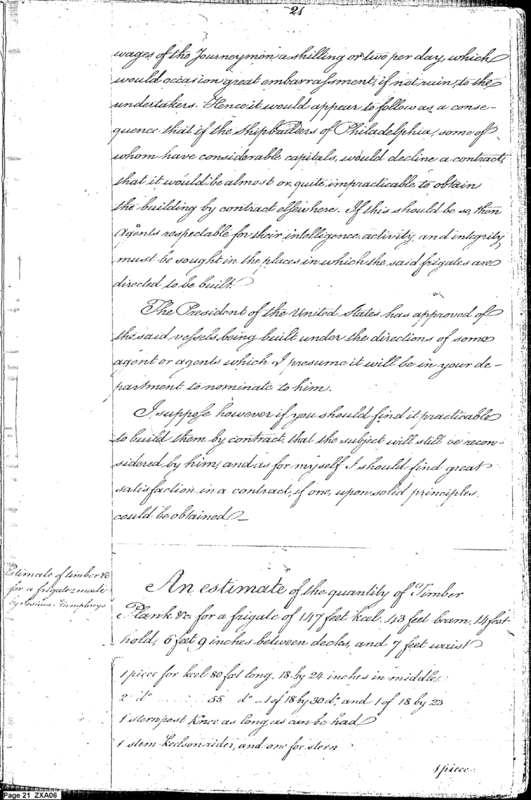 21
wages of the Journeymen a shilling or two per day, which
would occasion great embarrassment, if not ruin, to the
undertakers. Hence it would appear to follow as a conse-
quence that if the Shipbuilders of Philadelphia, some of
whom have considerable capitals, would decline a contract,
that it would be almost or quite impracticable to obtain
the building by contract elsewhere. If this should be so, then
Agents respectable for their intelligence activity, and integrity
must be sought in the places in which the said frigates are
directed to be built.
The President of the United States has approved of
the said vessels being built under the directions of some
agent or agents which I presume it will be in your de-
partment to nominate to him.
I suppose however if you should find it practicable
to build them by contract, that the subject will still be recon-
sidered by him, and as for myself I should find great
satisfaction in a contract, if one, upon solid principles
could be obtained_
Estimate of timber &c
for a frigate made
by Josiua Humphrys
An estimate of the quantity of Timber
Plank &c. for a frigate of 147 feet keel, 43 feet beam, 14 feet
hold, 6 feet 9 inches between decks, and 7 feet waist
1 piece for keel 80 feet long, 18 by 24 inches in middle.
2 do 55 do _ 1 of 18 by 30 do, and 1 of 18 by 23
1 sternpost Knee as long as can be had
1 stem Keelson rider, and one for stern
1 piece
Page 21 ZXA06